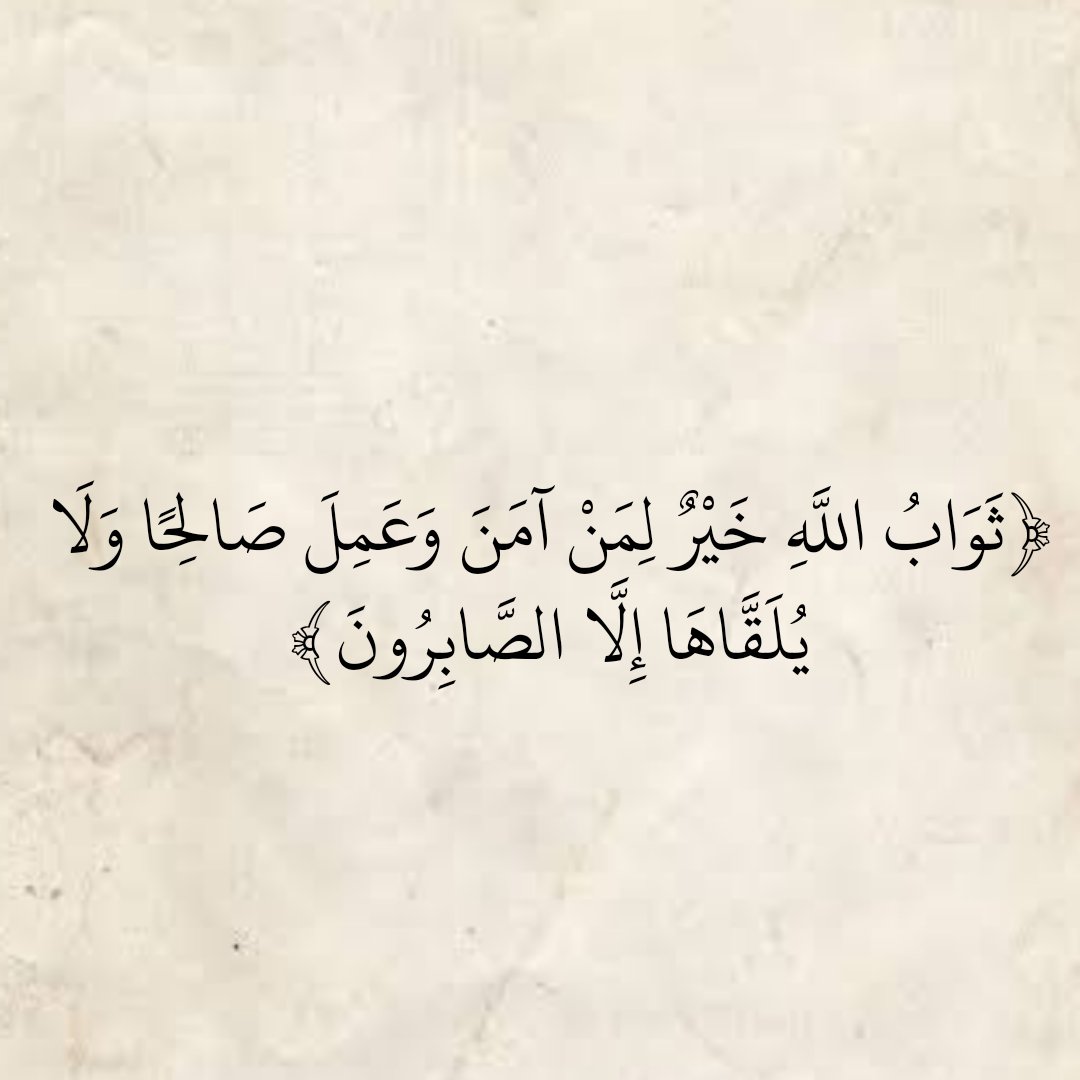 ﴿ثَوَابُ اللَّهِ خَيْرٌ لِمَنْ آمَنَ وَعَمِلَ صَالِحًا وَلَا
يُلَقَّاهَا إِلَّا الصَّابِرُونَ﴾